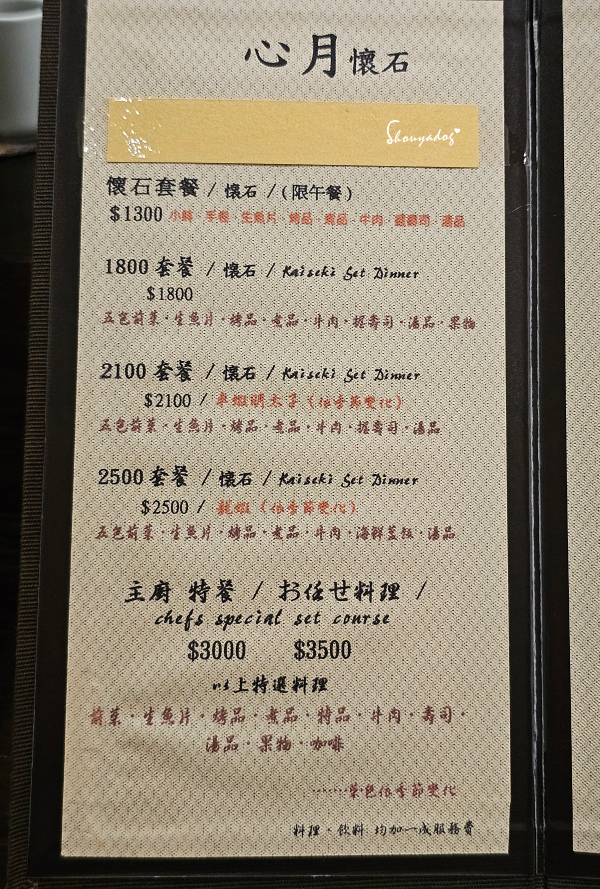 心月懷石
Shouyadog
懷石套餐 / 懷石 / (限午餐)
$1300 小缽·手卷·生魚片·烤品·煮品·牛肉·握壽司·湯品
1800 套餐 / 懷石 / Kaiseki Set Dinner
$1800
五色前菜·生魚片·烤品·煮品·牛肉·握壽司·湯品·果物
2100 套餐 / 懷石 / Kaiseki Set Dinner
$2100 / 車蝦明太子(依季節變化)
五色前菜·生魚片·烤品·煮品·牛肉·握壽司·湯品
2500 套餐 / 懷石 / Kaiseki Set Dinner
$2500 / 龍蝦(依季節變化)
五色前菜·生魚片·烤品·煮品·牛肉·海鮮蓋飯·湯品
主廚 特餐 / お任せ料理 /
chefs special set course
$3000 $3500
以上特選料理
前菜·生魚片·烤品·煮品·特品·牛肉·壽司·
湯品·果物·咖啡
·······菜色依季節變化
料理·飲料 均加一成服務費